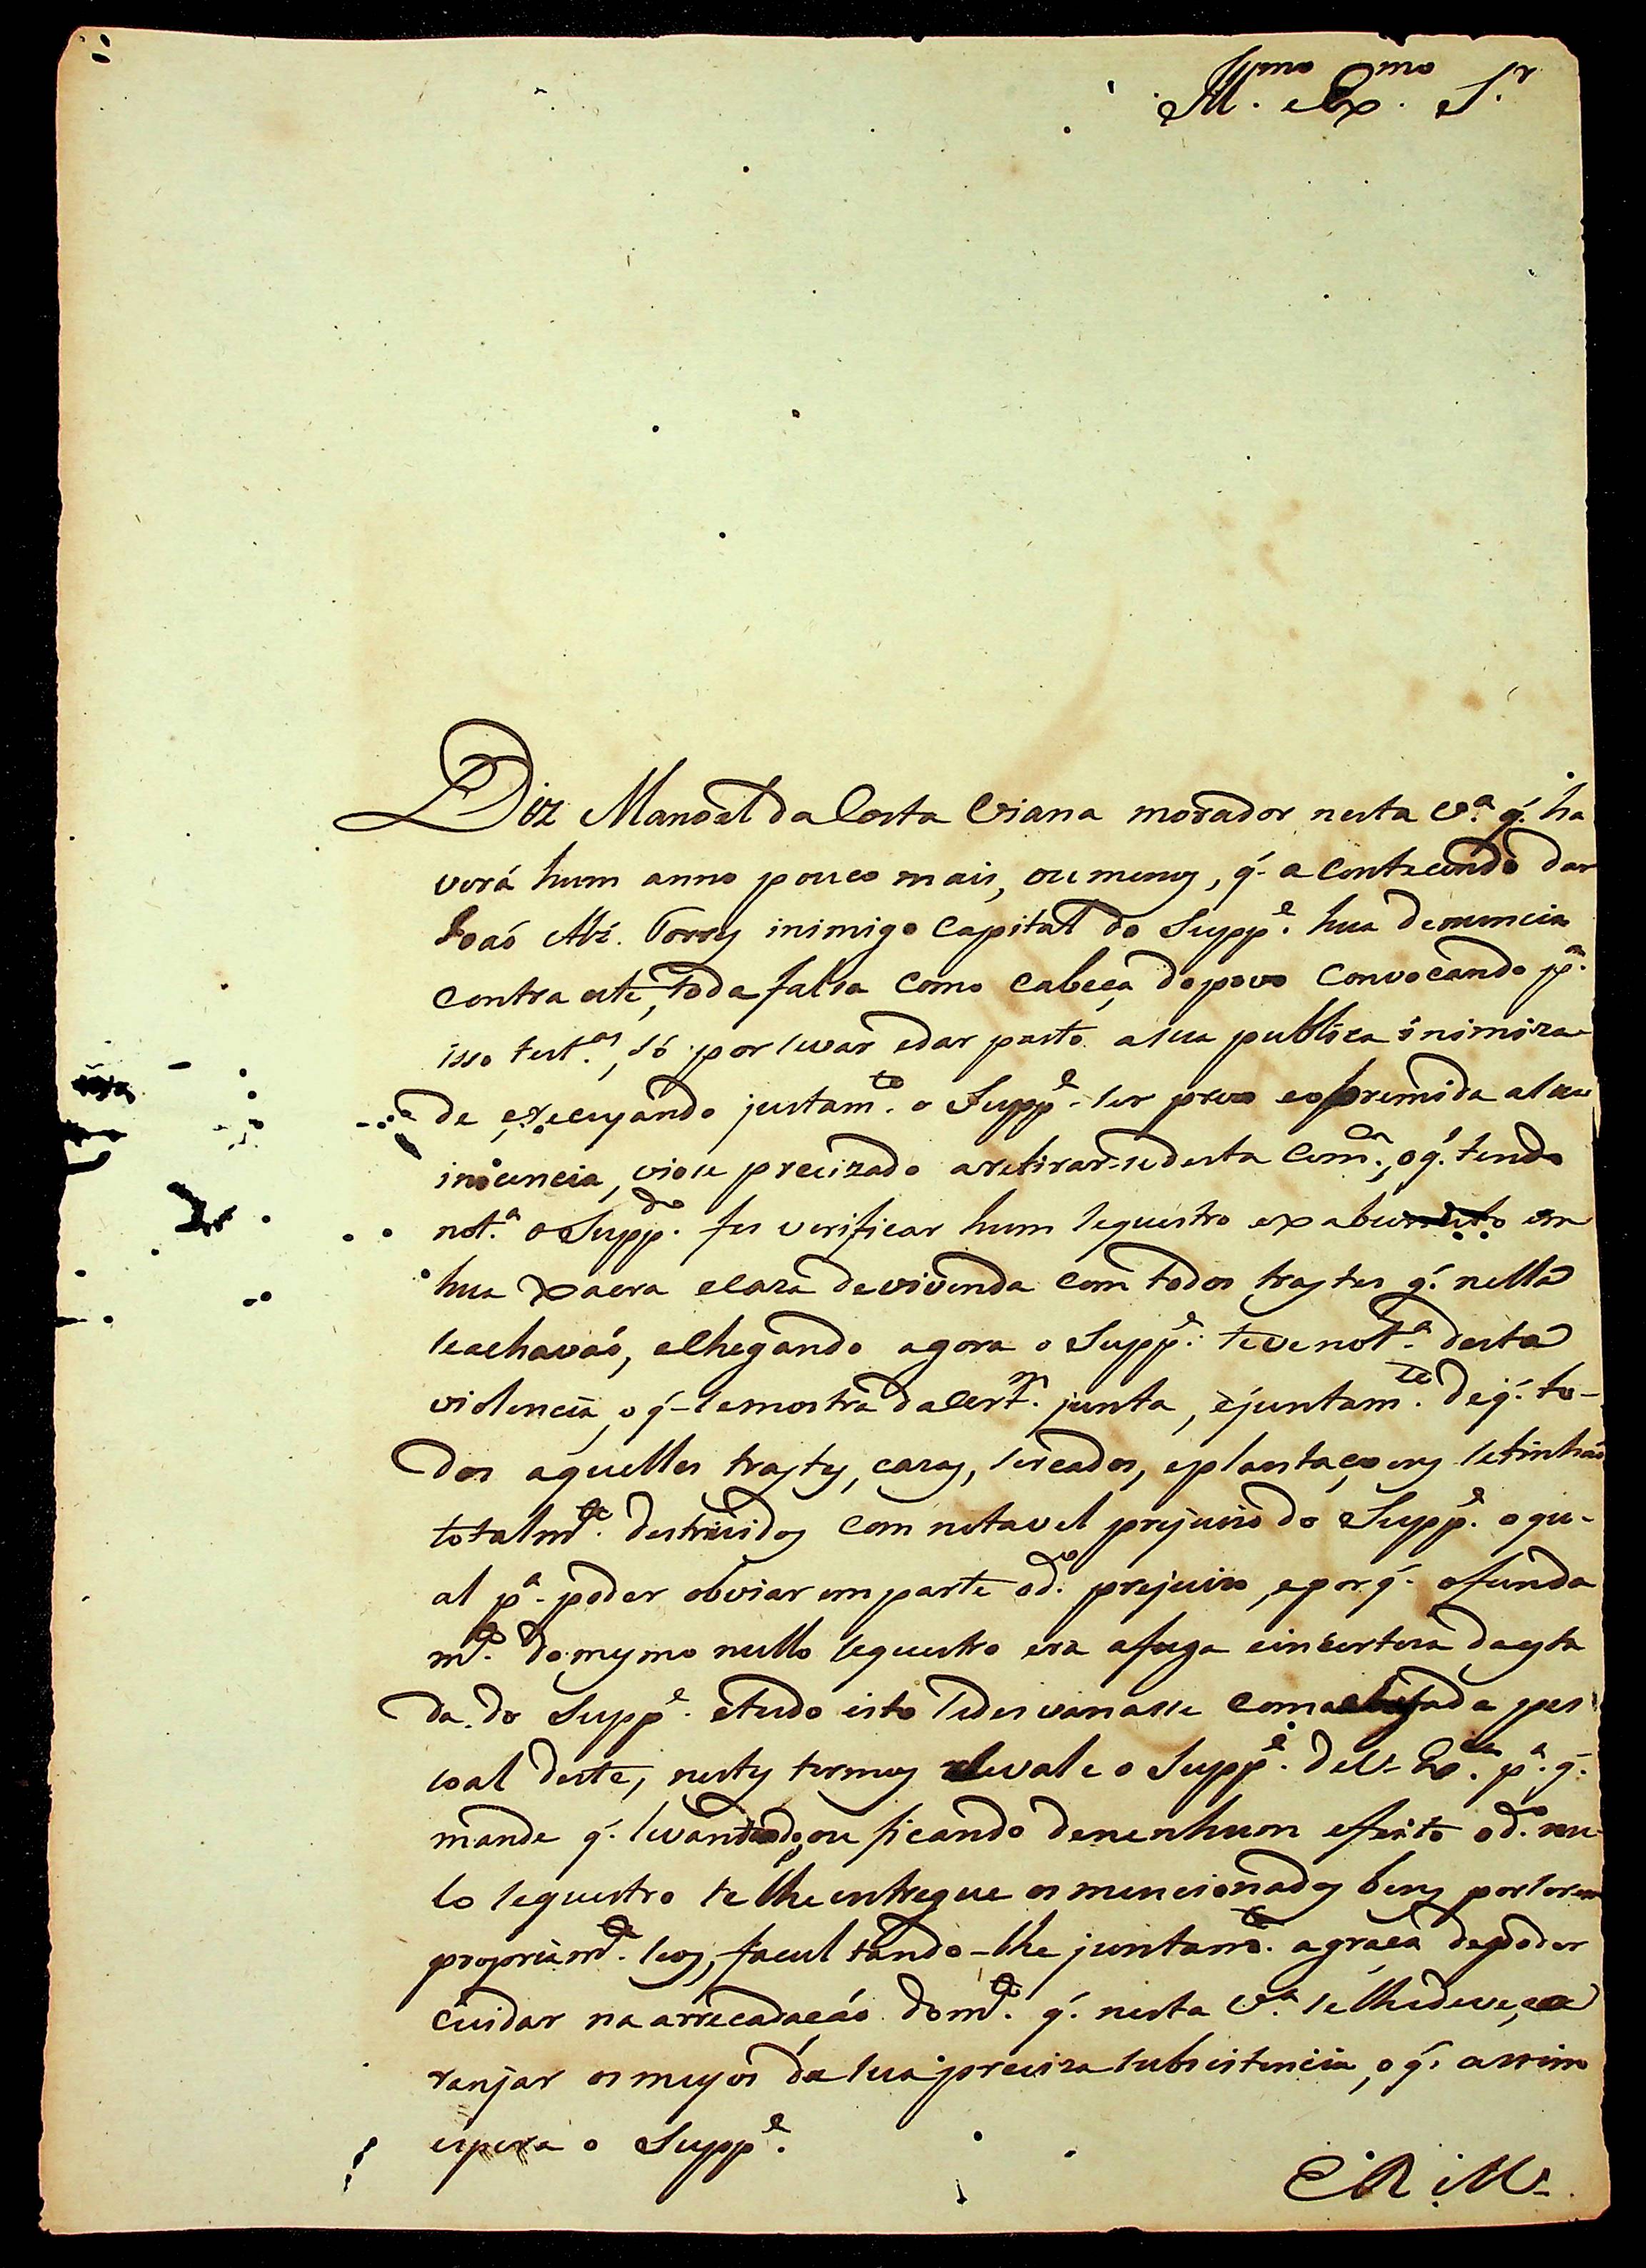 Ill.mo Ex.mo S.r
Diz Manoel da Costa Viana morador nesta V.ª q. ha
verá hum anno pouco mais, ou menos, q. acontecendo dar
Joaó Alz. Torres inimigo Capital do Supp.e hua denuncia
contra este, toda falsa como cabeça do povo convocando p.ª
isso test.as, só por levar e dar pasto a sua publica inimiza
de e receyando justam.te o Supp.e ser prezo e opremida a sua
inocencia, viose precizado a retirar-se desta Com.ca, o q. tendo
not.ª o Supp.do fes verificar hum sequestro ex abrupto em
hua xacra e caza de vivenda com todos trastes q. nella
se achavaó, e chegando agora o Supp.e teve not.ª desta
violencia, o q. se mostra da cert.m junta, e juntam.te de q. to-
dos aquelles trastes, cazas, sercados, e plantaçoens se tinhaó
totalm.te destruidos com notavel prejuizo do Supp.e o qu-
al p.ª poder obviar em parte o d.o prejuizo, e por q. o funda
m.to do mesmo nullo sequestro era a fuga e incerteza da esta
da do Supp.e e tudo isto se desvanasse com a chegada pes
soal deste, nestes termos se vale o Supp.e de V. Ex.ª p.ª q.
mande q. levantado, ou ficando de nenhum efeito o d.o nu-
lo sequestro se lhe entregue os mencionados bens por serem
propriam.te seos, facultando-lhe juntam.te a graça de poder
cuidar na arrecadaçaó do m.to q. nesta V.ª se lhe deve, e a
ranjar os meyos da sua preciza subsistencia, o q. assim
espera o Supp.e
E. R. M.ce